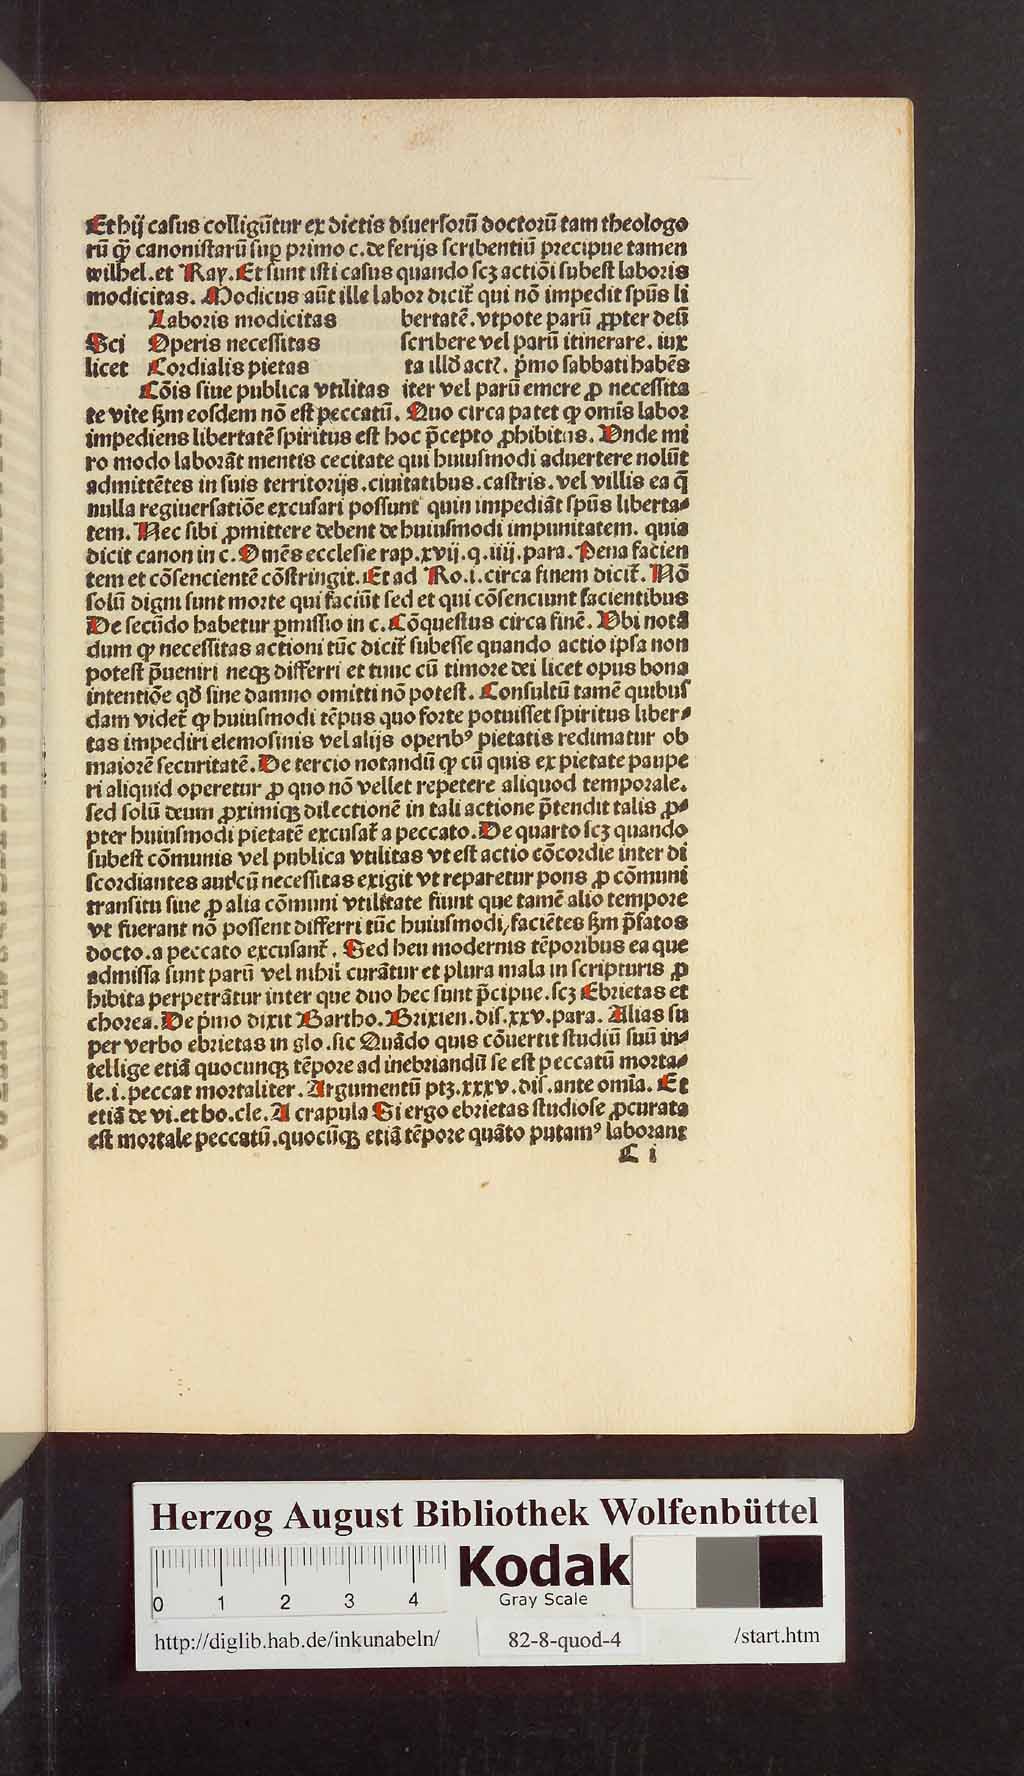 Et hij casus colligūtur ex dictis diuersorū doctorū tam theologo
rū qͣ̄ canonistarū suꝑ primo c. de ferijs scribentiū precipue tamen
wilhel. et Ray. Et sunt isti casus quando scꝫ actiōi subest laboris
modicitas. Modicus aūt ille labor dicit̄ qui nō impedit spūs li
Laboris modicitas bertatē. vtpote parū ꝓpter deū
Sci Operis necessitas scribere vel parū itinerare. iux
licet Cordialis pietas ta illd̄ act2. p̄mo sabbati habēs
Cōis siue publica vtilitas iter vel parū emere ꝓ necessita
te vite ẜm eosdem nō est peccatū. Quo circa patet ꝙ omīs labor
impediens libertatē spiritus est hoc p̄cepto ꝓhibitus. Vnde mi
ro modo laborāt mentis cecitate qui huiusmodi aduertere nolūt
admittētes in suis territorijs. ciuitatibus. castris. vel villis ea q̄
nulla regiuersatiōe excusari possunt quin impediāt spūs liberta⸗
tem. Nec sibi ꝓmittere debent de huiusmodi impunitatem. quia
dicit canon in c. Omēs ecclesie rap. xvij. q. iiij. para. Pena facien
tem et cōsencientē cōstringit. Et ad Ro. i. circa finem dicit̄. Nō
solū digni sunt morte qui faciūt sed et qui cōsenciunt facientibus
De secūdo habetur ꝑmissio in c. Cōquestus circa finē. Vbi notā
dum ꝙ necessitas actioni tūc dicit̄ subesse quando actio ipsa non
potest p̄ueniri neqꝫ differri et tunc cū timore dei licet opus bona
intentiōe qd̄ sine damno omitti nō potest. Consultū tamē quibus
dam videt̄ ꝙ huiusmodi tēpus quo forte potuisset spiritus liber⸗
tas impediri elemosinis vel alijs operibꝰ pietatis redimatur ob
maiorē securitatē. De tercio notandū ꝙ cū quis ex pietate paupe
ri aliquid operetur ꝓ quo nō vellet repetere aliquod temporale.
sed solū deum ꝓximiqꝫ dilectionē in tali actione p̄tendit talis ꝓ⸗
pter huiusmodi pietatē excusat̄ a peccato. De quarto scꝫ quando
subest cōmunis vel publica vtilitas vt est actio cōcordie inter di
scordiantes aut cū necessitas exigit vt reparetur pons ꝓ cōmuni
transitu siue ꝓ alia cōmuni vtilitate fiunt que tamē alio tempore
vt fuerant nō possent differri tūc huiusmodi, faciētes ẜm p̄fatos
docto. a peccato excusant̄. Sed heu modernis tēporibus ea que
admissa sunt parū vel nihil curātur et plura mala in scripturis ꝓ
hibita perpetrātur inter que duo hec sunt p̄cipue. scꝫ Ebrietas et
chorea. De p̄mo dixit Bartho. Brixien. dis. xxv. para. Alias su
per verbo ebrietas in glo. sic Quādo quis cōuertit studiū suū in⸗
tellige etiā quocunqꝫ tēpore ad inebriandū se est peccatū morta⸗
le. i. peccat mortaliter. Argumentū ptꝫ. xxxv. dis. ante omīa. Et
etiā de vi. et ho. cle. A crapula Si ergo ebrietas studiose ꝓcurata
est mortale peccatū. quocūqꝫ etiā tēpore quāto putamꝰ laborant
C i
Herzog August Bibliothek Wolfenbüttel
0 1 2 3 4
Kodak
Gray Scale
http://diglib.hab.de/inkunabeln/ 82-8-quod-4 /start.htm